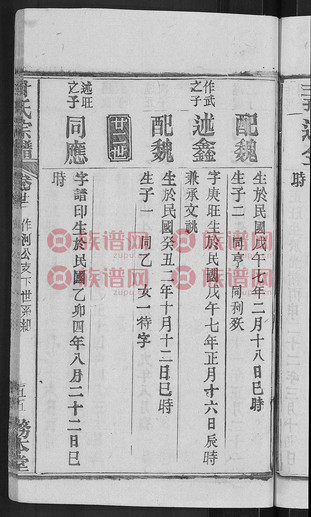 時
作武之子
述鑫
字庚旺生於民國戊午七年正月十六日辰時
兼承文祧
配魏
生於民國戊午七年二月十八日巳時
生子二 同亨 同利殀
配魏
生於民國癸丑二年十月十二日巳時
生子一 同乙 女一待字
廿二世
述旺之子
同應
字譜印生於民國乙卯四年八月二十二日巳
時
氏宗譜
作河公亥下世系
五五
務本堂
族谱网
zupu.cn